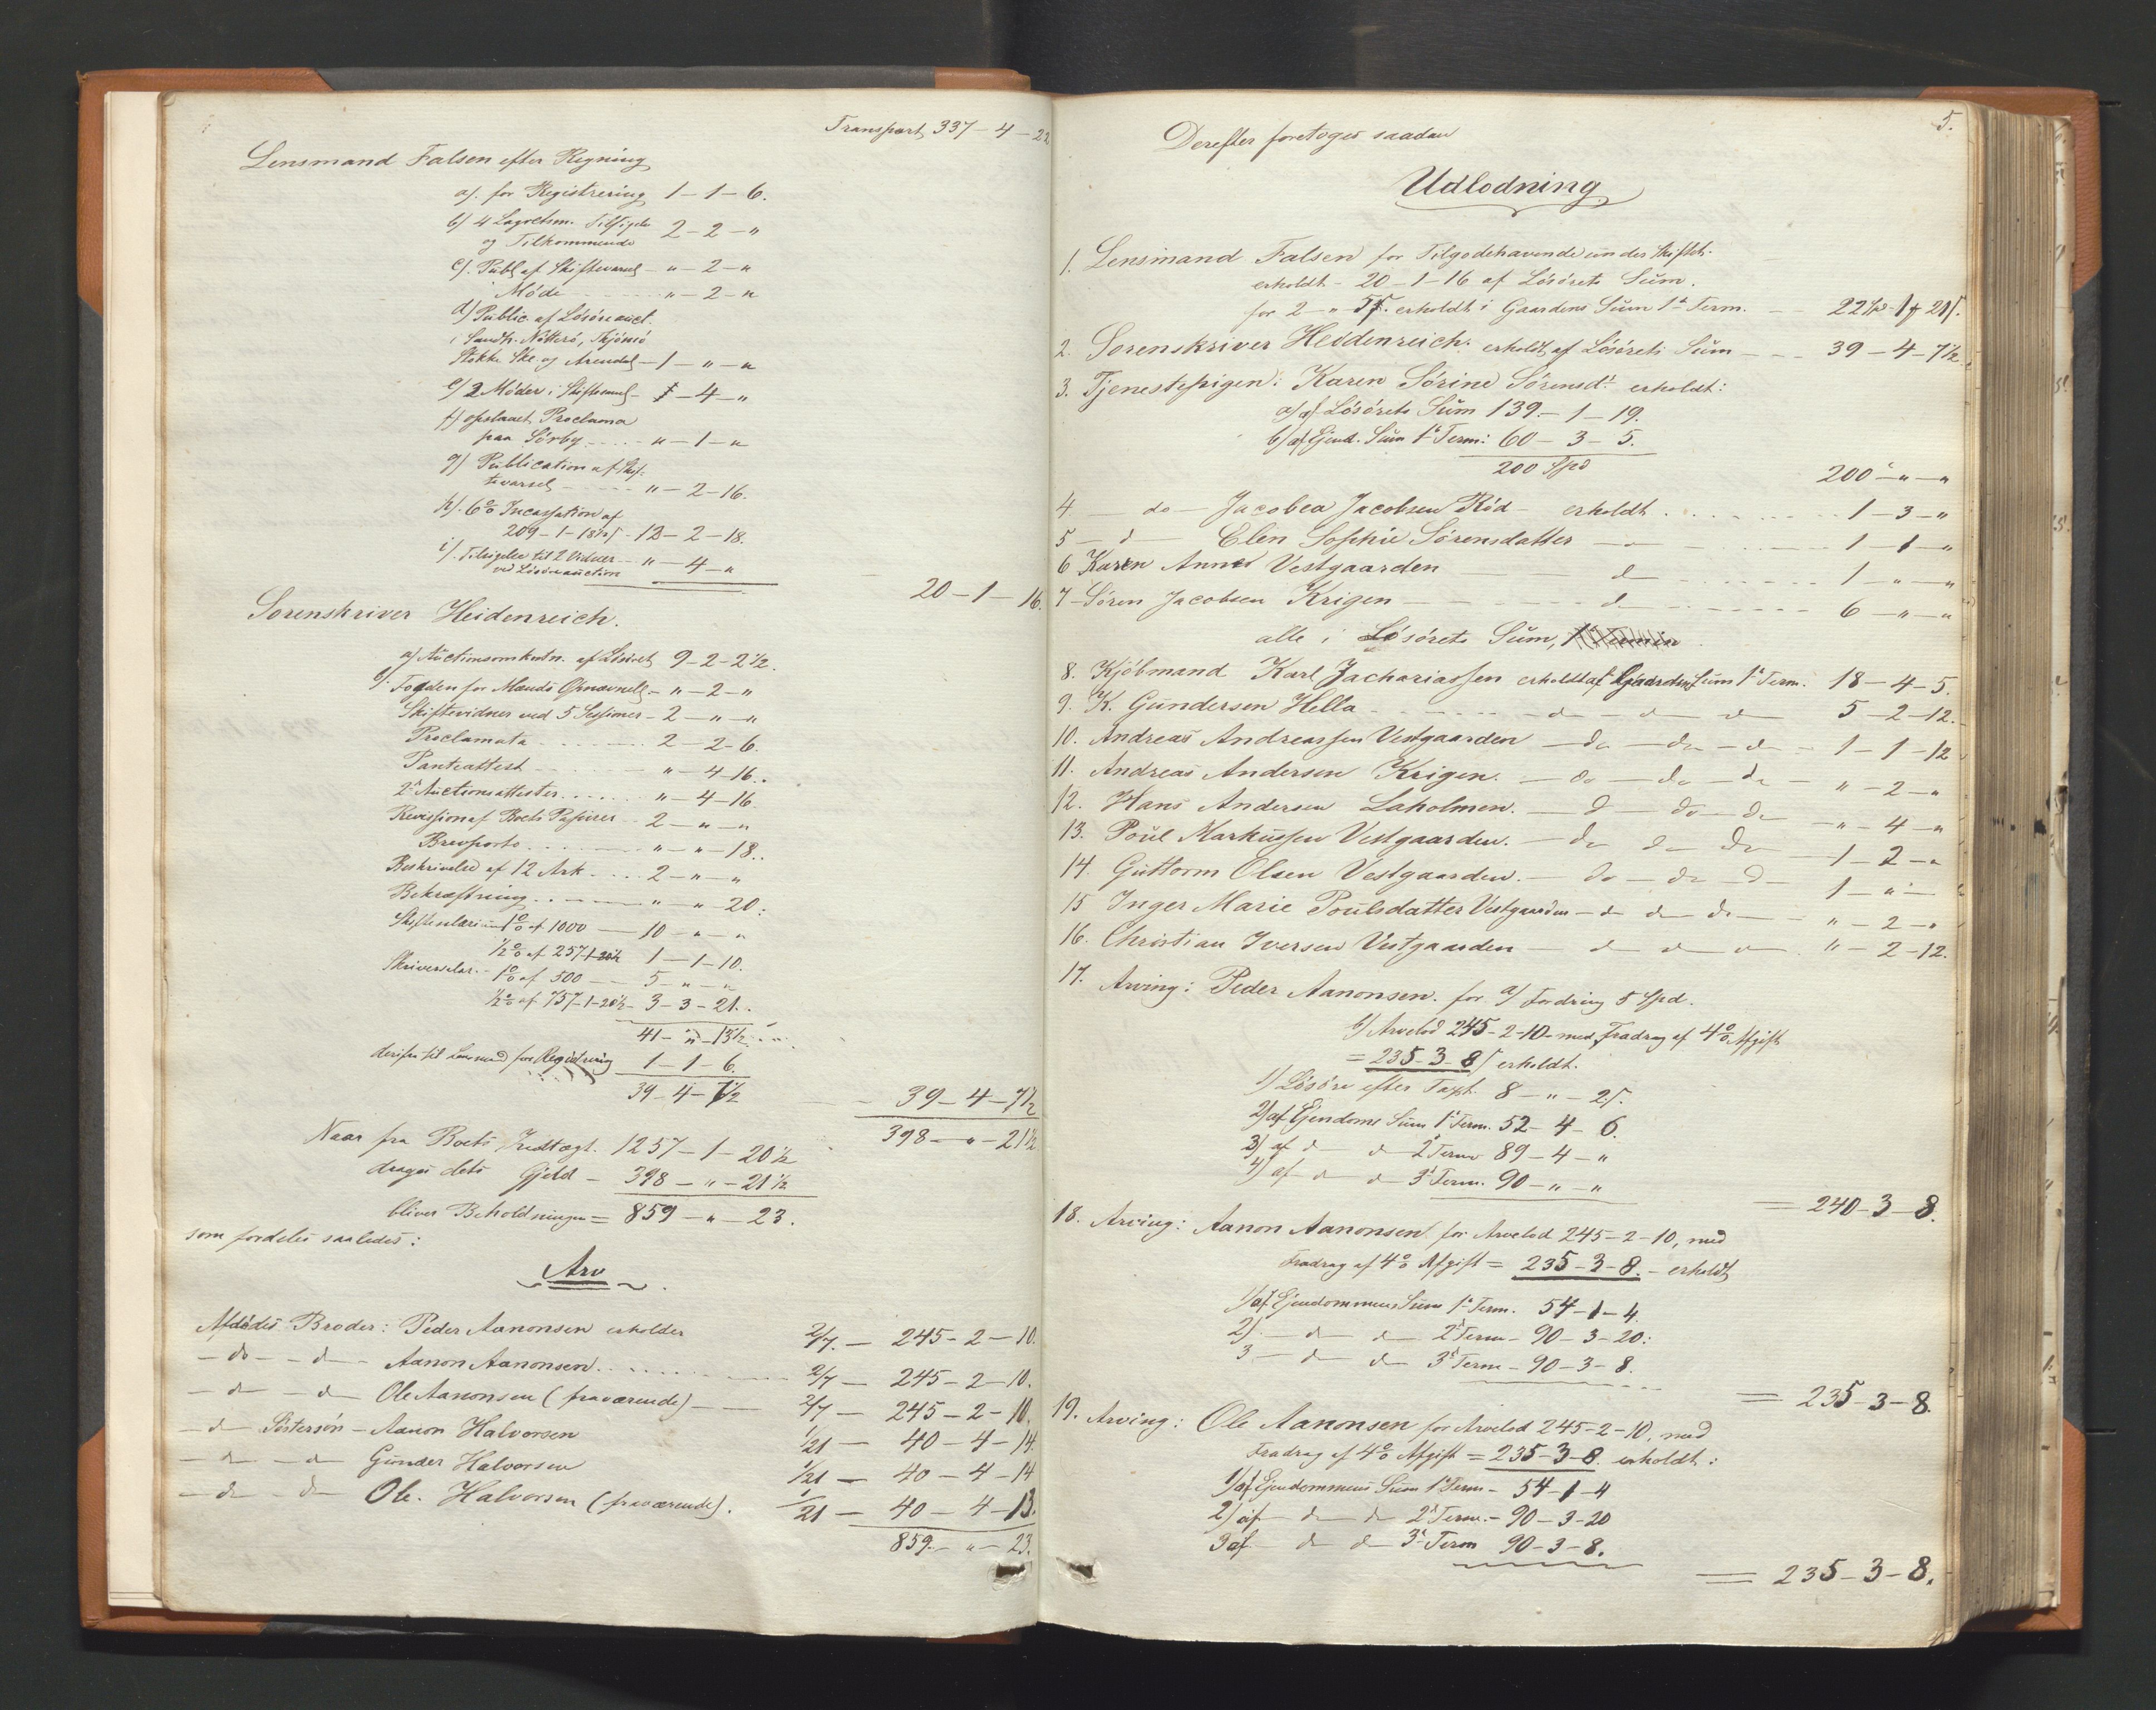 Transport 337-4-22
Lensmand Falsen efter Regning
a). for Registrering 1-1-6.
b) 4 Lagretsm. Tilsigelse
og Tilkommende 2-2-"
c). Publ. af Skiftevarsel - "-2-"
Møde "-2-"
d) Public. af Løsøreauct.
i Sandh. Nøtterø, Tjømø
Stokke Ske. og Arendal - 1-"-"
e) 2 Møder i Skiftesaml. - 1-4-"
f) opslaaet Proclama
paa Sørby "-1-"
g) Publication af Skif-
tevarsel "-2-16.
h). 6% Incassation af
209-1-18½ - 12-2-18.
i). Tilsigelse til 2 Vidner - "-4-"
ved Løsøreauction
20-1-16.
Sorenskriver Heidenreich.
a) Auctionsomkostn. af Løsøret 9-2-2½.
b). Fogden for Mænds Opnævnelse - "-2-"
Skiftevidner ved 5 Sessioner - 2-"-"
Proclamata 2-2-6.
Panteattest "-4-16.
2 Auctionsattester "-4-16.
Revission af Boets Papirer 2-"-"
Brevporto "-"-18.
Beskrivelse af 12 Ark 2-"-"
Bekræftning "-"-20.
Skiftesalarium 1% af 1000 10-"-"
½% af 257-1-20½ 1-1-10.
Skriversalar. 1% af 500 5-"-"
½% af 757-1-20½ - 3-3-21.
41-"-13½
derifra til Lensmand for Registrering 1-1-6.
39-4-7½ 39-4-7½
398-"-21½
Naar fra Boets Indtægt. 1257-1-20½
drages dets Gjeld - 398-"-21½
bliver Beholdningen = 859-"-23.
som fordeles saaledes:
Arv
Afdødes Broder: Peder Aanonsen erholder 2/7. - 245-2-10.
- do - d - Aanon Aanonsen 2/7 - 245-2-10.
- d - d - Ole Aanonsen (fraværende) 2/7 - 245-2-10.
- d - Søstersøn - Aanon Halvorsen 1/21 - 40-4-14.
- d - d - Gunder Halvorsen 1/21 - 40-4-14
- d - d - Ole. Halvorsen (fraværende). 1/21 - 40-4-13.
859-"-23.
5.
Derefter foretoges saadan
Udlodning
1. Lensmand Falsen for Tilgodehavende under Skiftet
erholdt - 20-1-16 af Løsørets Sum.
for 2-"-5 erholdt i Gaardens Sum 1ste Term. 22 Spd 1 21
2. Sorenskriver Heidenreich: erholdt af Løsørets Sum - 39-4-7½
3. Tjenestepigen: Karen Sørine Sørensdt. erholdt:
a) af Løsørets Sum 139-1-19.
b) af Ejend. Sum 1ste Term: 60-3-5.
200 Spd 200-"-"
4 - do - Jacobea Jacobsen Rød - erholdt 1-3-"
5 - d - Elen Sophie Sørensdatter 1-1-"
6 Karen Anne Vestgaarden - d - 1-"-"
7 - Søren Jacobsen Krigen - d - 6-"-"
alle i Løsørets Sum,
8. Kjøbmand Karl Zachariassen erholdt af Gaardens Sum 1ste Term. 18-4-5.
9. K. Gundersen Hella - d - d - d 5-2-12.
10. Andreas Andreassen Vestgaarden - do - do - d - 1-1-12
11. Andreas Andersen Krigen. - do - do - do - "-2-"
12. Hans Andersen Laholmen. - d - do - do - "-4-"
13. Poul Markussen Vestgaarden. - do d - do 1-2-"
14. Guttorm Olsen Vestgaarden. - do - do - d - 1-"-
15 Inger Marie Poulsdatter Vestgaarden - d d d - "-2-"
16. Christian Iversen Vestgaarden - d d d "-2-12.
17. Arving: Peder Aanonsen. for a) Fordring 5 Spd.
b) Arvelod 245-2-10 - med Fradrag af 4% Afgift
= 235-3-8 erholdt.
1) Løsøre efter Taxt. 8-"-2.
2) af Ejendoms Sum 1ste Term. 52-4-6.
3) af d d 2 Term 89-4-"
4) af d d 3 Term. 90-"-"
= 240-3-8.
18. Arving: Aanon Aanonsen for Arvelod 245-2-10, med
Fradrag af 4% Afgift = 235-3-8. - erholdt
1) af Ejendommens Sum 1ste Term. 54-1-4.
2) - d d 2 Term - 90-3-20.
3 - d d 3 Term - 90-3-8.
= 235-3-8.
19. Arving: Ole Aanonsen for Arvelod 245-2-10, med
Fradrag af 4% Afgift = 235-3-8. erholdt:
1) af Ejendommens Sum 1 Term - 54-1-4
2) af d d 2 Term. - 90-3-20
3 af d d 3 Term 90-3-8.
= 235-3-8.